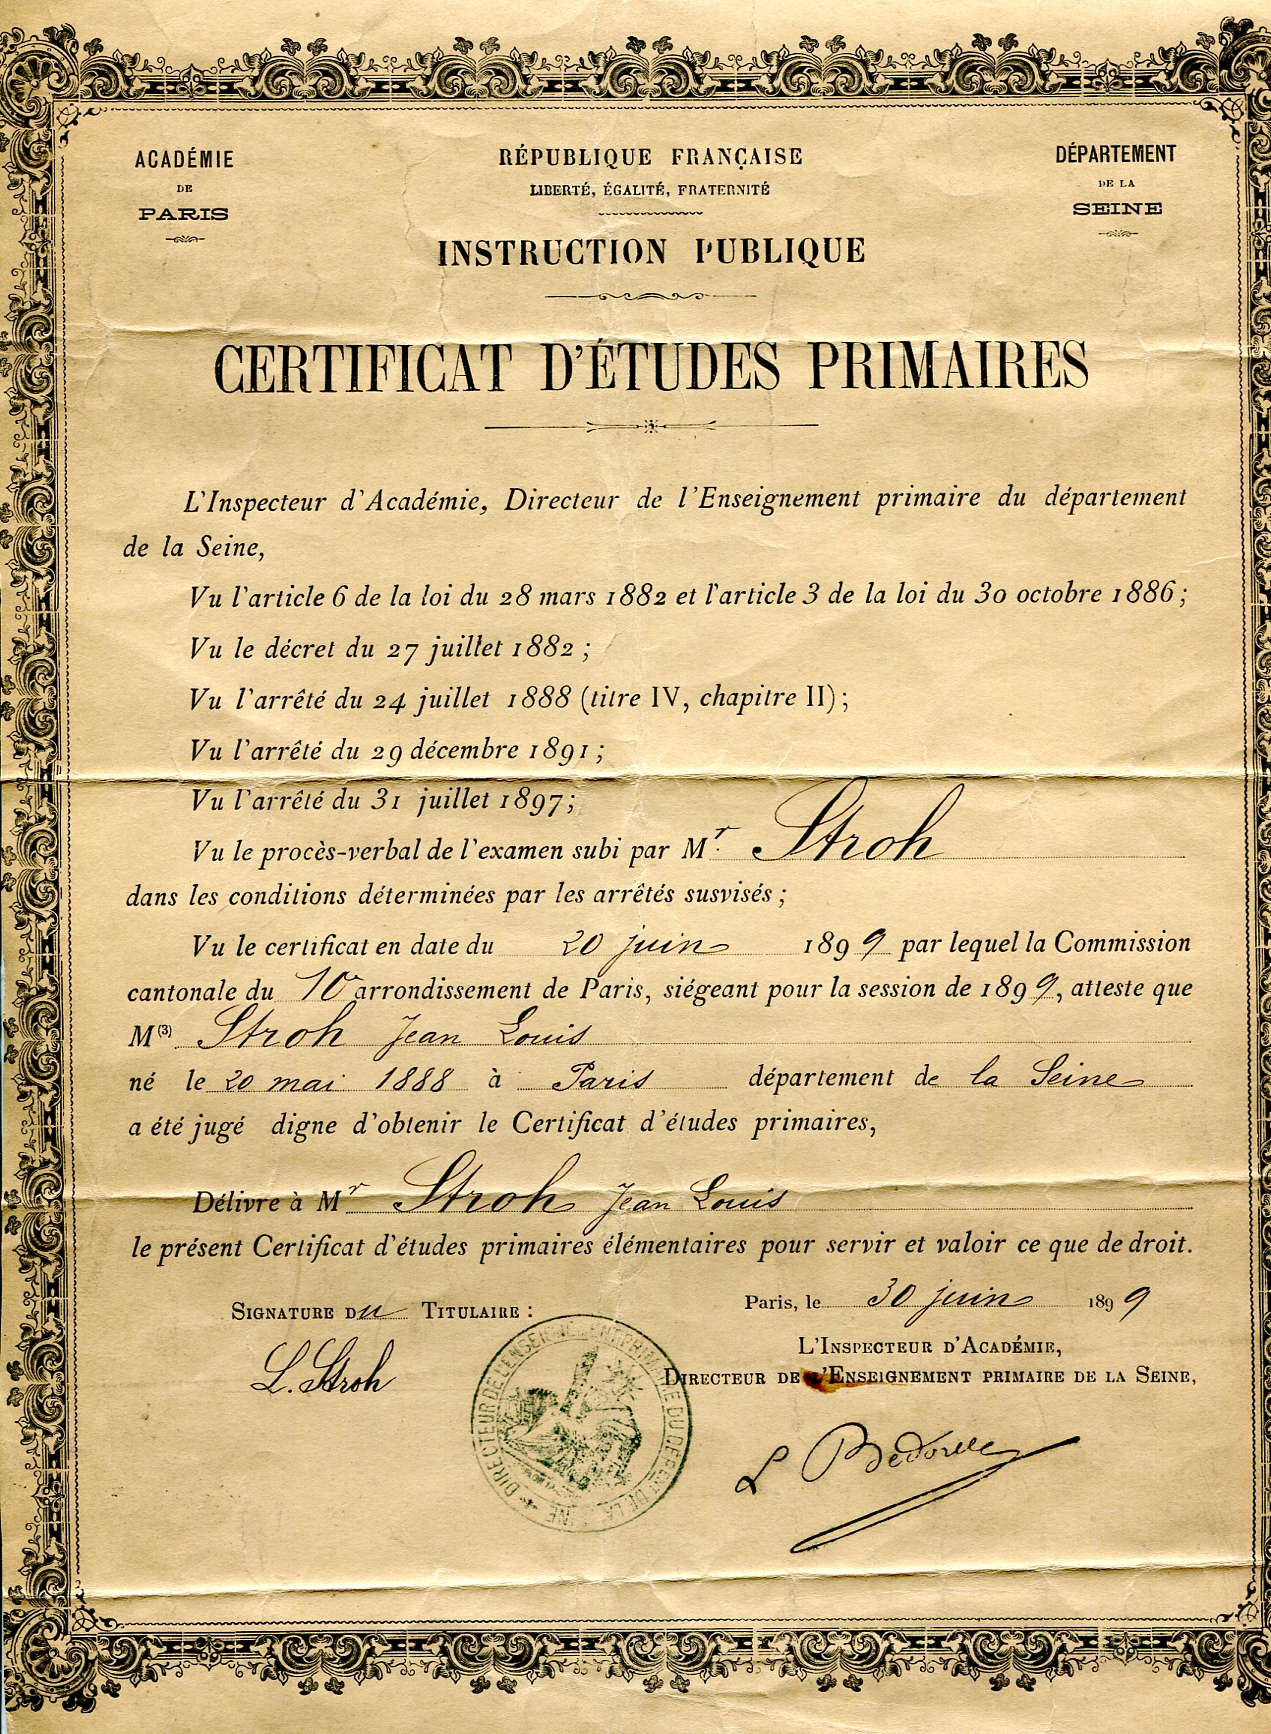 ACADÉMIE
DE
PARIS
RÉPUBLIQUE FRANÇAISE
LIBERTÉ, ÉGALITÉ, FRATERNITÉ
INSTRUCTION PUBLIQUE
DÉPARTEMENT
DE LA
SEINE
CERTIFICAT D'ÉTUDES PRIMAIRES
L'Inspecteur d'Académie, Directeur de l'Enseignement primaire du département
de la Seine,
Vu l'article 6 de la loi du 28 mars 1882 et l'article 3 de la loi du 30 octobre 1886;
Vu le décret du 27 juillet 1882;
Vu l'arrêté du 24 juillet 1888 (titre IV, chapitre II);
Vu l'arrêté du 29 décembre 1891;
Vu l'arrêté du 31 juillet 1897;
Vu le procès-verbal de l'examen subi par Mr. Stroh
dans les conditions déterminées par les arrêtés susvisés;
Vu le certificat en date du 20 juin 1899 par lequel la Commission
cantonale du 10e arrondissement de Paris, siégeant pour la session de 1899, atteste que
M(3) Stroh Jean Louis
né le 20 mai 1888 à Paris département de la Seine
a été jugé digne d'obtenir le Certificat d'études primaires,
Délivre à Mr Stroh Jean Louis
le présent Certificat d'études primaires élémentaires pour servir et valoir ce que de droit.
Paris, le 30 juin 1899
SIGNATURE DU TITULAIRE :
L. Stroh
L'INSPECTEUR D'ACADÉMIE,
DIRECTEUR DE L'ENSEIGNEMENT PRIMAIRE DE LA SEINE,
DIRECTEUR DE L'ENSEIGNEMENT PRIMAIRE DU DÉPENT DE LA SEINE